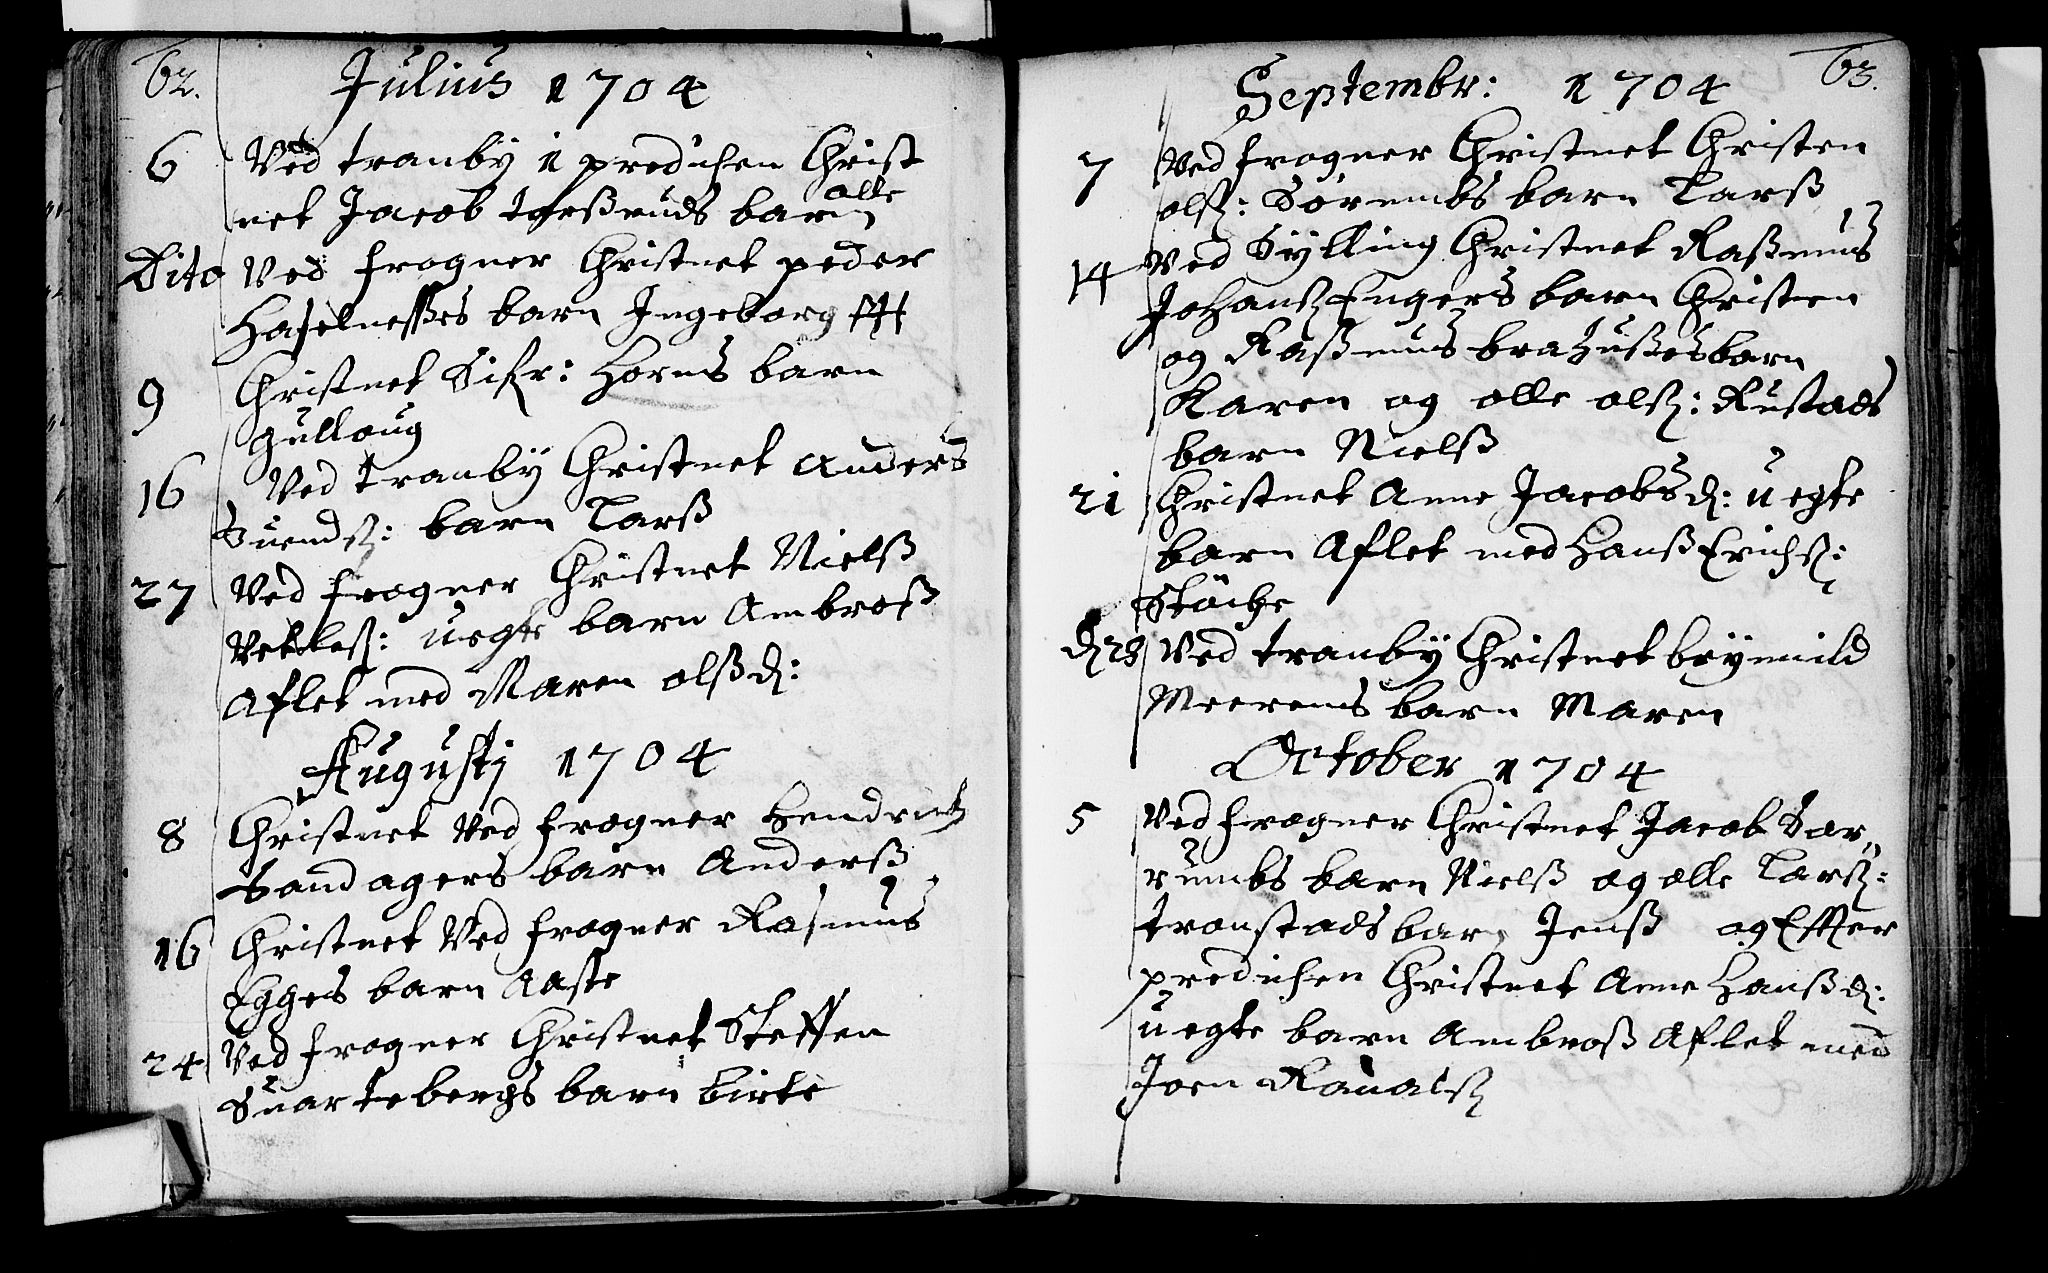 62.
Julius 1704
6 Ved tranby 1 predichen Christ
net Jacob torßruds barn olle
Dito Ved frogner Christnet peder
Haselneßes barn Ingeborg
9 Christnet Sifr: Horns barn
gulloug
16 Ved tranby Christnet Anders
Suends: barn Larß
27 Ved frogner Christnet Nielß
uegte barn Ambroß
Aflet med Maren olßd:
Augustj 1704
8 Christnet Ved frogner Hendrich
Sandagers barn Anderß
16 Christnet Ved frogner Rasmus
Egges barn Aaste
24 Ved frogner Christnet Steffen
Suartebergs barn birte
63.
Septembr: 1704
7 Ved frogner Christnet Christen
olß: Sørumbs barn Larß
14 Ved Sylling Christnet Raßmus
Johanß Engers barn Christen
og Raßmus brahußes barn
Karen og olle olß: Rustads
barn Nielß
21 Christnet Anne Jacobsd: uegte
barn Aflet med Hanß Erichß:
d 28 Ved tranby Christnet brynnild
Meerens barn Maren
October 1704
5 Ved frogner Christnet Jacob Sør„
rumbs barn Nielß og olle Larß:
tronstads barn Jenß og Effter
predichen Christnet Anne Hanßd:
uegte barn Ambroß Aflet med
Joen